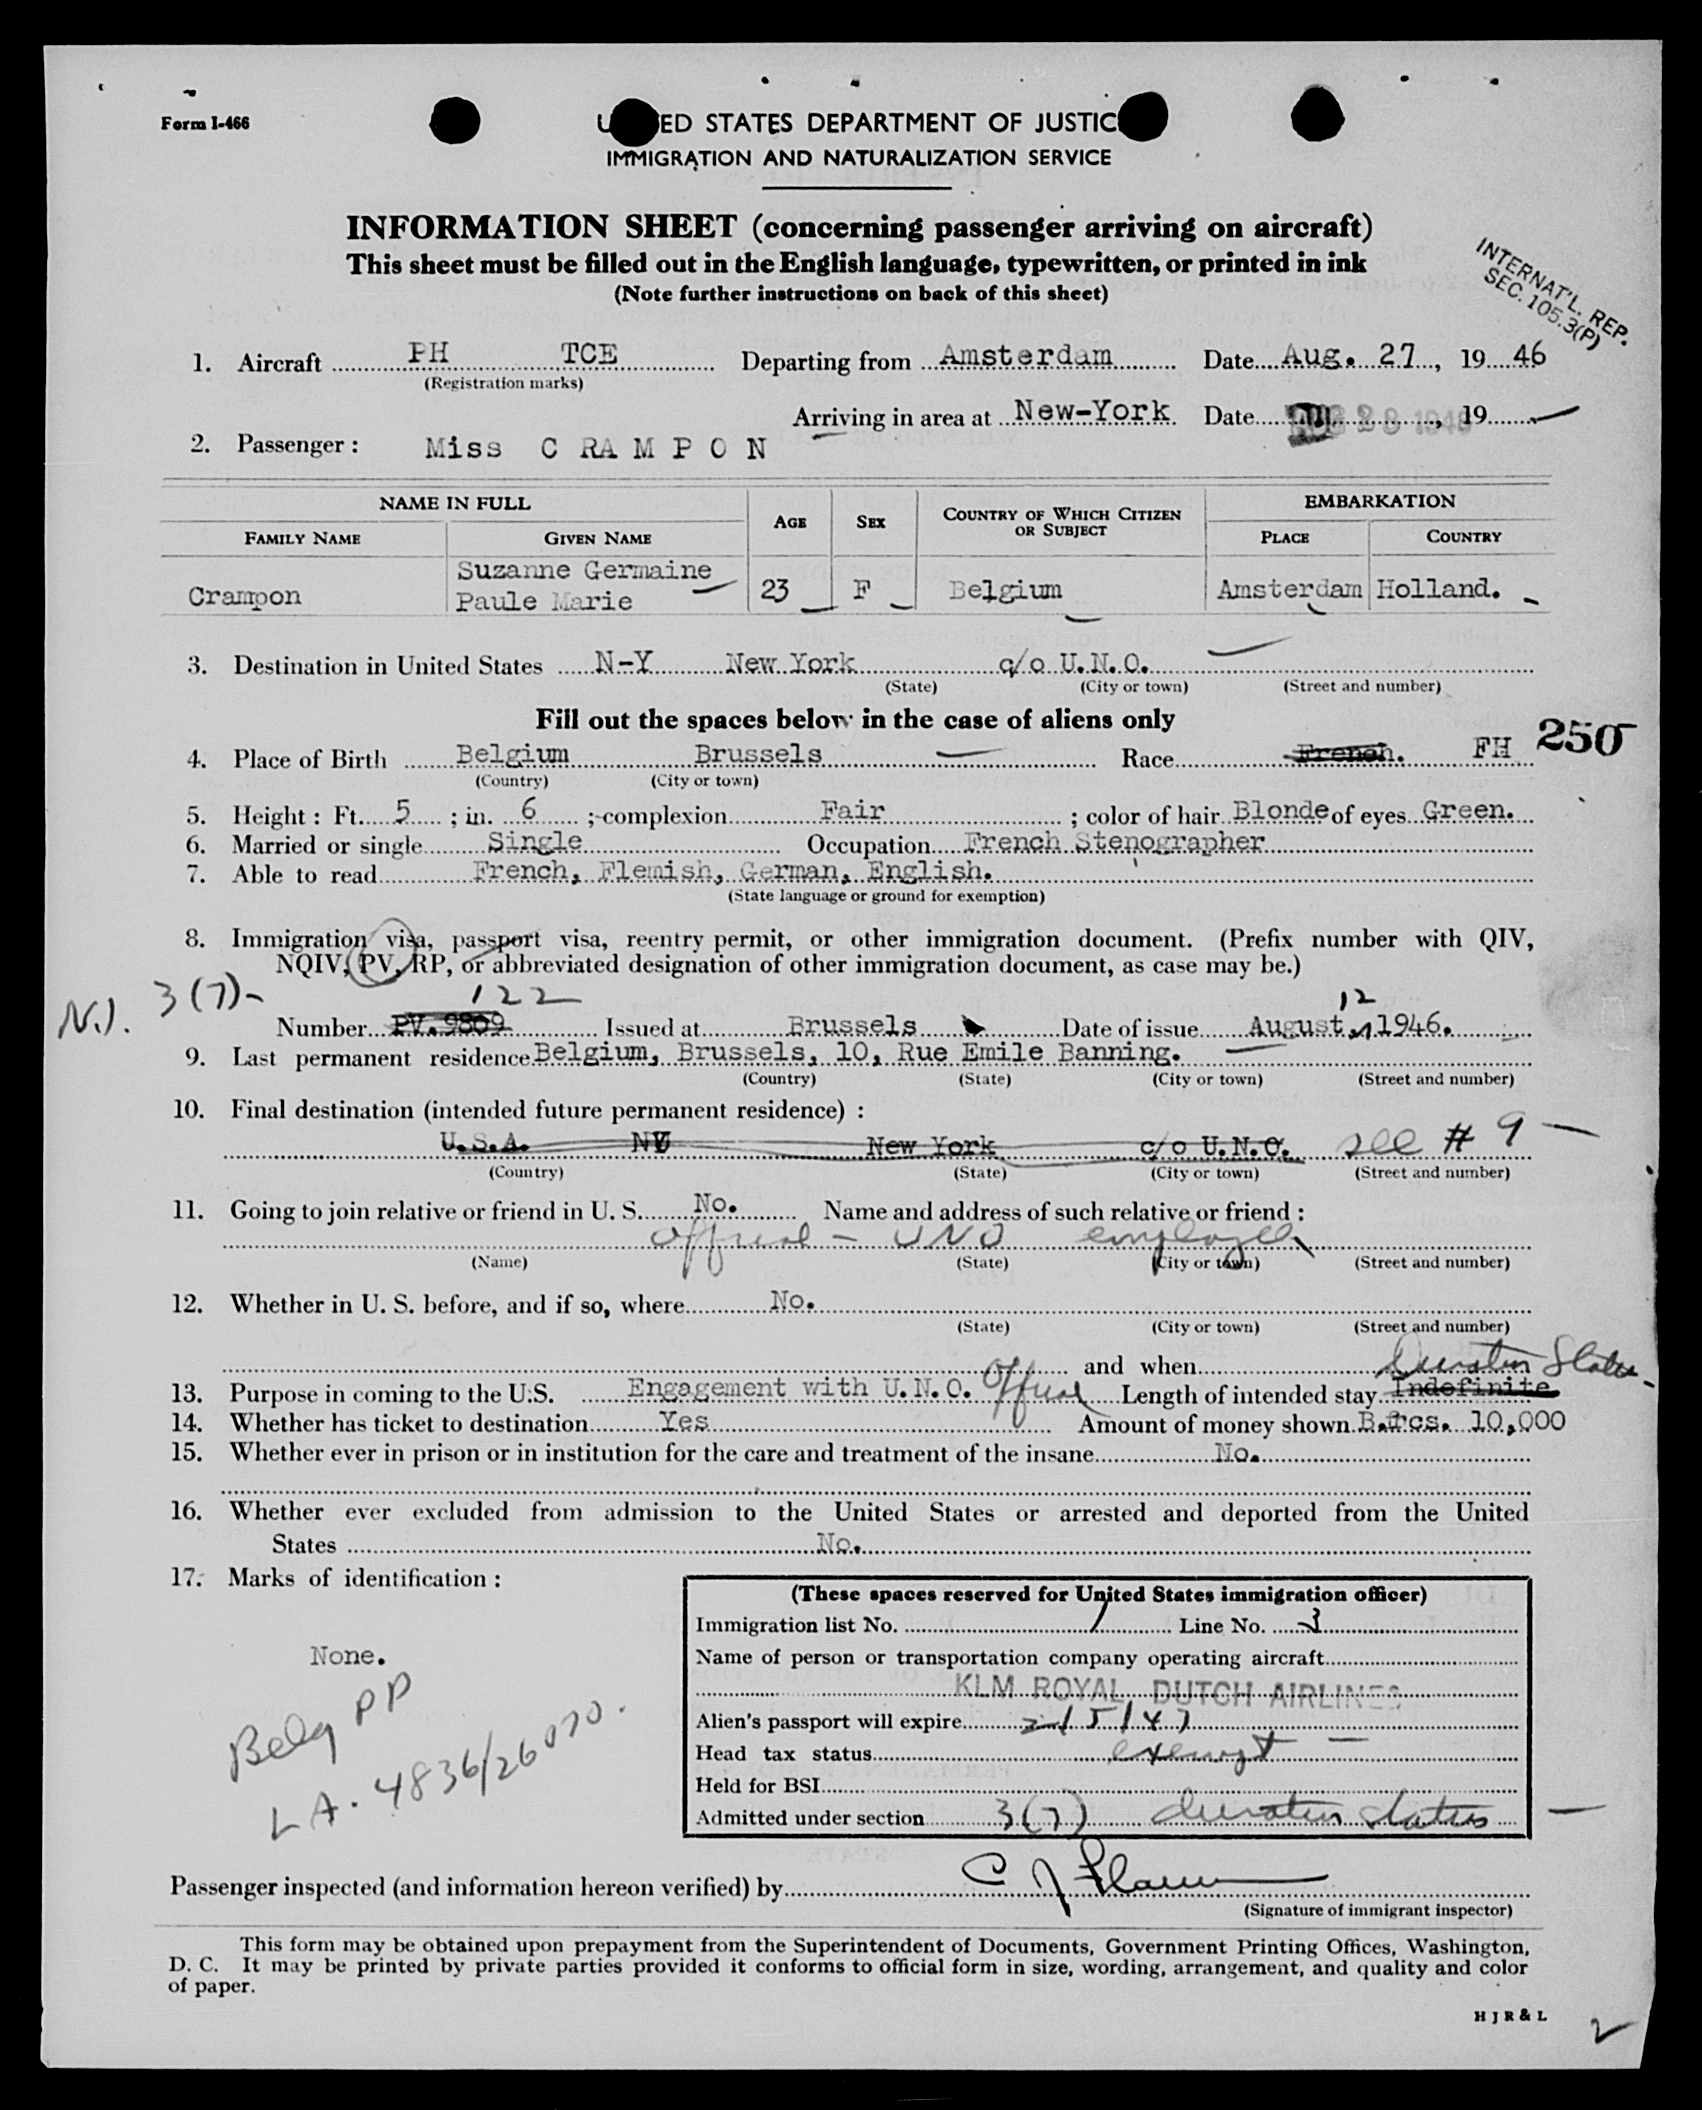 Form I-466
ED STATES DEPARTMENT OF JUSTIC
IMMIGRATION AND NATURALIZATION SERVICE
INFORMATION SHEET (concerning passenger arriving on aircraft)
This sheet must be filled out in the English language, typewritten, or printed in ink
(Note further instructions on back of this sheet)
INTERNAT'L. REP.
SEC. 105.3(P)
1. Aircraft PH TCE Departing from Amsterdam Date Aug. 27, 19 46
(Registration marks)
Arriving in area at New-York Date 28 1946, 19
2. Passenger: Miss C RA M P O N
NAME IN FULL AGE SEX COUNTRY OF WHICH CITIZEN OR SUBJECT EMBARKATION
FAMILY NAME GIVEN NAME PLACE COUNTRY
Crampon Suzanne Germaine Paule Marie 23 F Belgium Amsterdam Holland.
3. Destination in United States N-Y New York c/o U.N.O.
(State) (City or town) (Street and number)
Fill out the spaces below in the case of aliens only
4. Place of Birth Belgium Brussels Race French. FH 250
(Country) (City or town)
5. Height: Ft. 5; in. 6; complexion Fair; color of hair Blonde of eyes Green.
6. Married or single Single Occupation French Stenographer
7. Able to read French, Flemish, German, English.
(State language or ground for exemption)
8. Immigration visa, passport visa, reentry permit, or other immigration document. (Prefix number with QIV,
NQIV, PV, RP, or abbreviated designation of other immigration document, as case may be.)
N.I. 3(7)- 122 12
Number PV. 9809 Issued at Brussels Date of issue August, 1946.
9. Last permanent residence Belgium, Brussels, 10, Rue Emile Banning.
(Country) (State) (City or town) (Street and number)
10. Final destination (intended future permanent residence):
U.S.A. NY New York c/o U.N.O. see # 9 —
(Country) (State) (City or town) (Street and number)
11. Going to join relative or friend in U. S. No. Name and address of such relative or friend:
official - UNO employee
(Name) (State) (City or town) (Street and number)
12. Whether in U. S. before, and if so, where No.
(State) (City or town) (Street and number)
and when Duration Status
13. Purpose in coming to the U.S. Engagement with U.N.O. Official Length of intended stay Indefinite
14. Whether has ticket to destination Yes Amount of money shown B.frcs. 10,000
15. Whether ever in prison or in institution for the care and treatment of the insane No.
16. Whether ever excluded from admission to the United States or arrested and deported from the United
States No.
17. Marks of identification:
None.
Belg PP
LA. 4836/26070.
(These spaces reserved for United States immigration officer)
Immigration list No. 1 Line No. 3
Name of person or transportation company operating aircraft
KLM ROYAL DUTCH AIRLINES
Alien's passport will expire 2/5/47
Head tax status exempt —
Held for BSI
Admitted under section 3(7) duration status —
Passenger inspected (and information hereon verified) by C J
(Signature of immigrant inspector)
This form may be obtained upon prepayment from the Superintendent of Documents, Government Printing Offices, Washington,
D. C. It may be printed by private parties provided it conforms to official form in size, wording, arrangement, and quality and color
of paper.
H J R & L
2